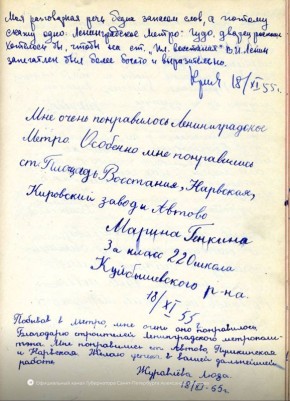 Моя разговорная речь бедна запасом слов, а поэтому
скажу одно: Ленинградское метро: чудо, дворец
хотелось бы, чтобы на ст. "Пл. восстания" В.И. Ленин
запечатлен был более богато и выразительно.
18/XI 55 г.
Мне очень понравилось Ленинградское
Метро. Особенно мне понравились
ст. Площадь Восстания, Нарвская,
Кировский завод и Автово
Марина Генкина
3а класс 220 школа
Куйбышевского р-на.
18/XI 55
Побывав в метро, мне очень оно понравилось
Благодарю строителей ленинградского метрополи-
тена. Мне понравились ст. Автово, Пушкинская
и Нарвская. Желаю успеха в вашей дальнейшей
работе
Журавлёва Лода
18/XI-55 г.